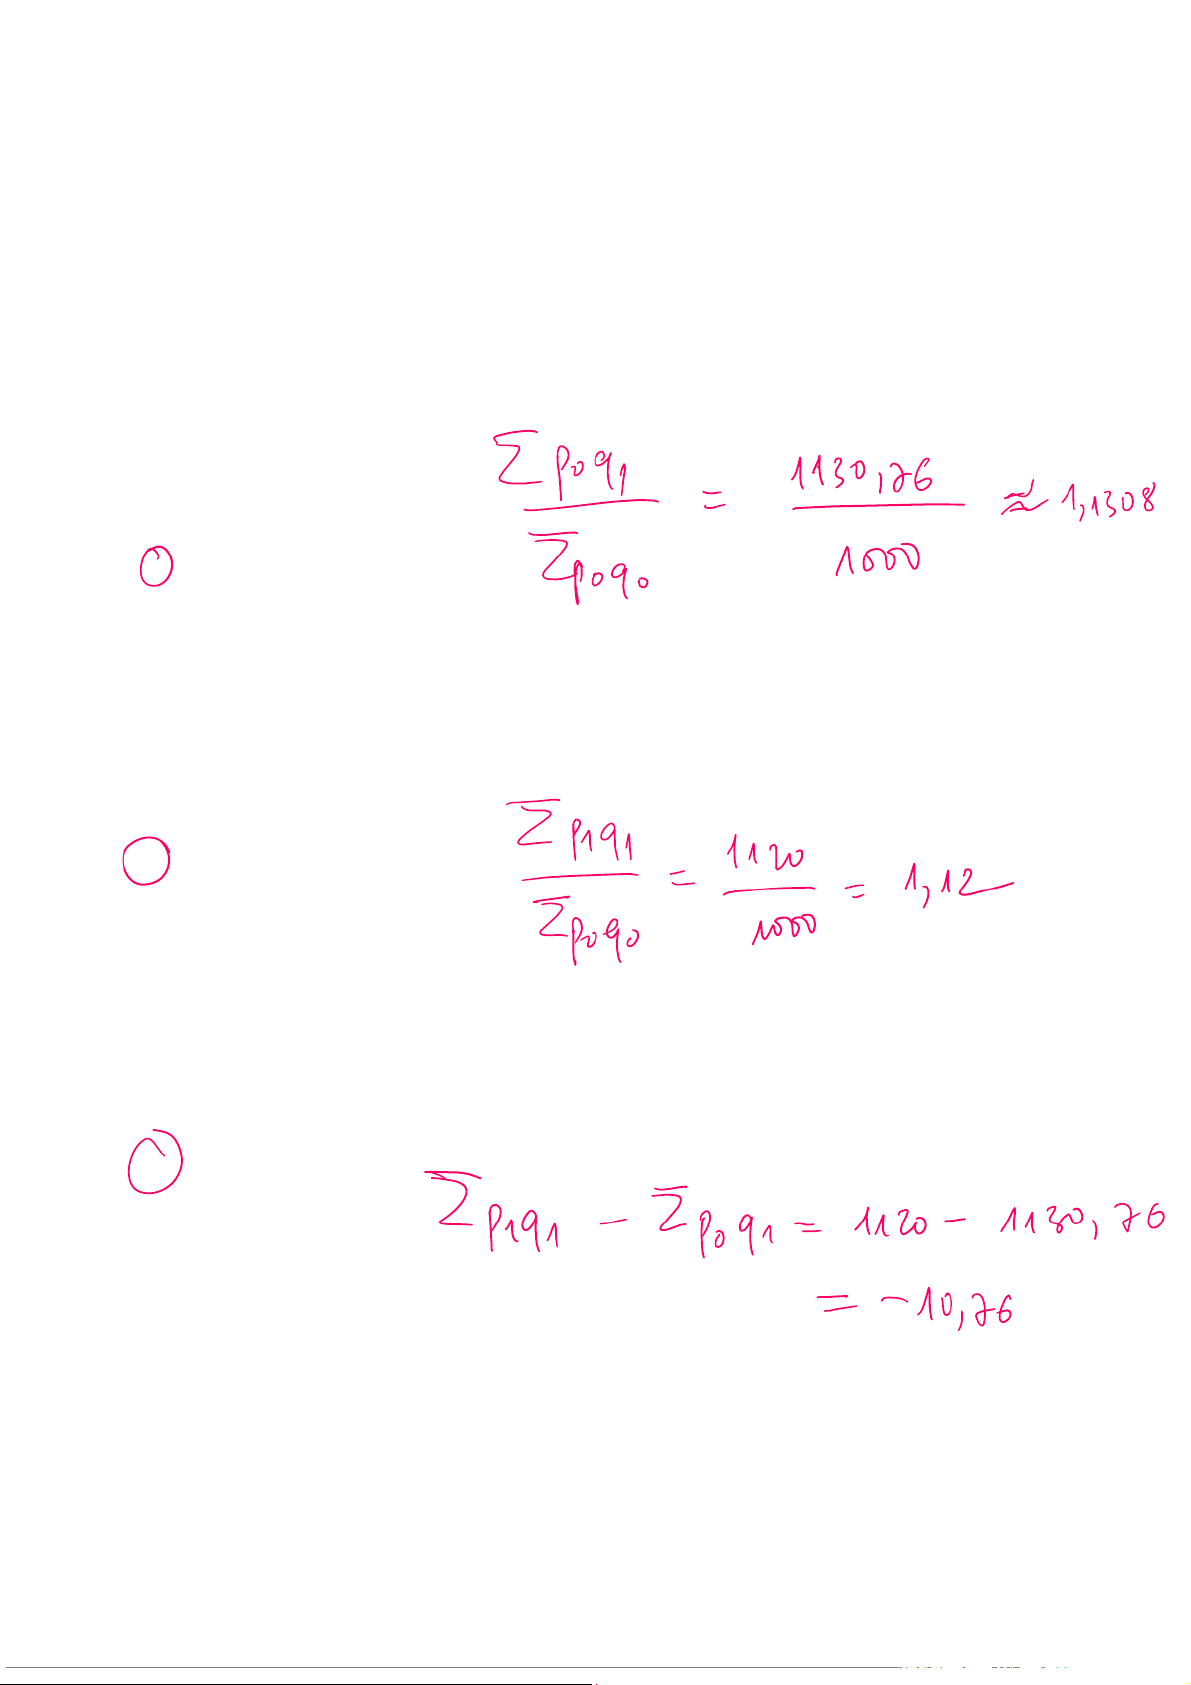 Σp₀q₁ / Σp₀q₀ = 1130,76 / 1000 ≈ 1,1308
Σp₁q₁ / Σp₀q₀ = 1120 / 1000 = 1,12
Σp₁q₁ − Σp₀q₁ = 1120 − 1130,76
= −10,76